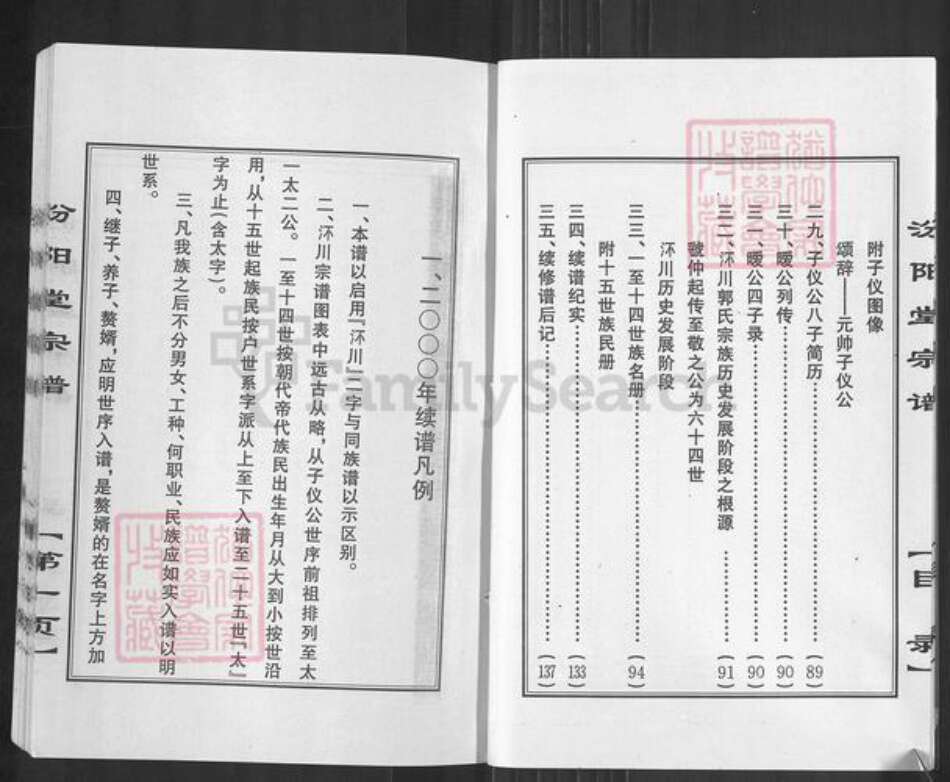 汾阳堂宗谱
【目录】
附子仪图像
颂辞——元帅子仪公
二九、子仪公八子简历……(89)
三十、暧公列传……(90)
三一、暧公四子录……(90)
三二、沶川郭氏宗族历史发展阶段之根源……(91)
虢仲起传至敬之公为六十四世
沶川历史发展阶段
三三、一至十四世族名册……(94)
附十五世族民册
三四、续谱纪实……(133)
三五、续修谱后记……(137)
一、二〇〇〇年续谱凡例
一、本谱以启用『沶川』二字与同族谱以示区别。
二、沶川宗谱图表中远古从略，从子仪公世序前祖排列至太
一太二公。一至十四世按朝代帝代族民出生年月从大到小按世沿
用，从十五世起族民按户世系字派从上至下入谱至二十五世『太』
字为止(含太字)。
三、凡我族之后不分男女、工种、何职业、民族应如实入谱以明
世系。
四、继子、养子、赘婿，应明世序入谱，是赘婿的在名字上方加
汾阳堂宗谱
【第一页】
FamilySearch